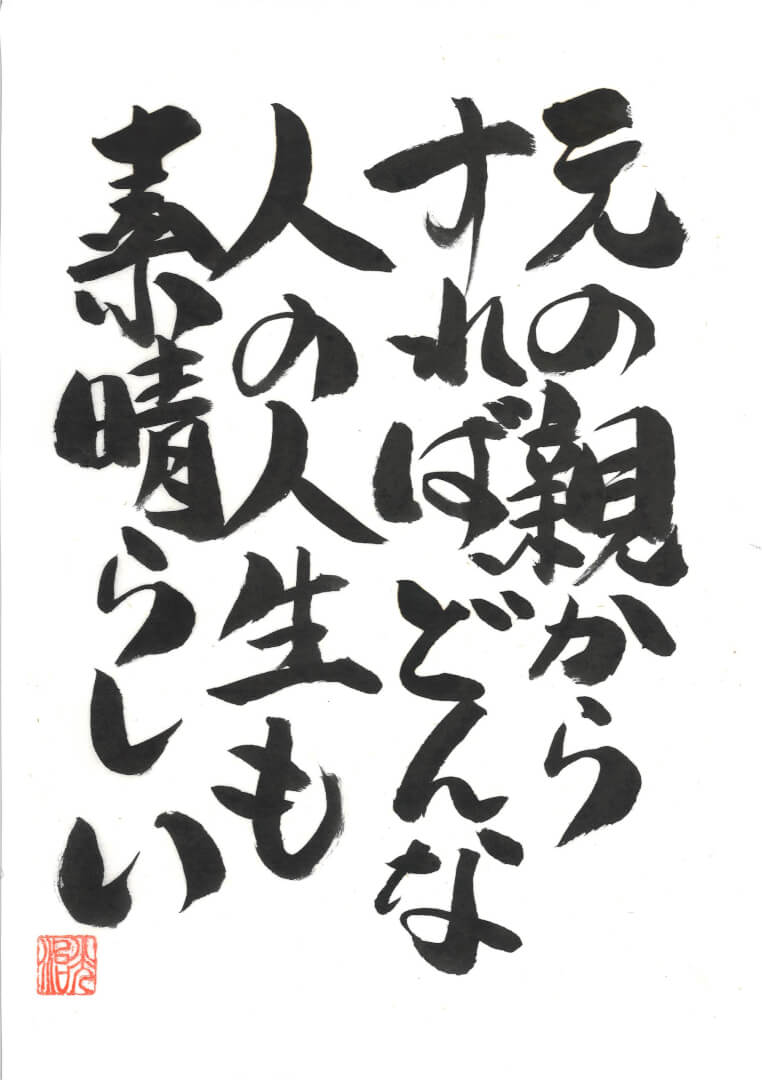 元の親から
すればどんな
人の人生も
素晴らしい